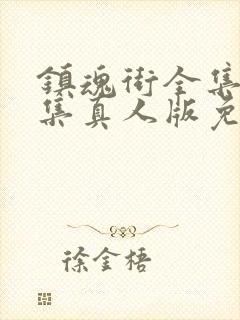 鎮魂街全集
集真人版免
徐金梧